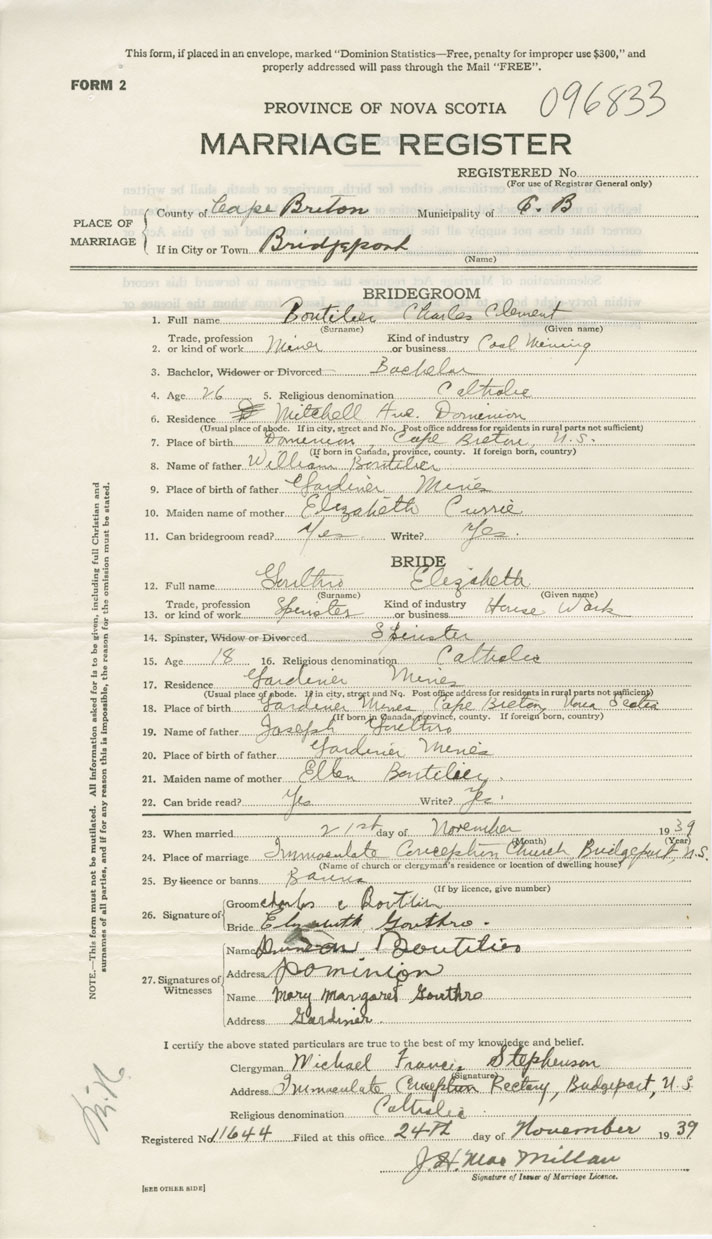 This form, if placed in an envelope, marked "Dominion Statistics—Free, penalty for improper use $300," and
properly addressed will pass through the Mail "FREE".
FORM 2
PROVINCE OF NOVA SCOTIA 096833
MARRIAGE REGISTER
REGISTERED No.
(For use of Registrar General only)
PLACE OF MARRIAGE
County of Cape Breton Municipality of C. B
If in City or Town Bridgeport
(Name)
BRIDEGROOM
1. Full name Boutilier Charles Clement
(Surname) (Given name)
2. Trade, profession or kind of work Miner Kind of industry or business Coal Mining
3. Bachelor, Widower or Divorced Bachelor
4. Age 26 5. Religious denomination Catholic
6. Residence Mitchell Ave. Dominion
(Usual place of abode. If in city, street and No. Post office address for residents in rural parts not sufficient)
7. Place of birth Dominion, Cape Breton, N.S.
(If born in Canada, province, county. If foreign born, country)
8. Name of father William Boutilier
9. Place of birth of father Gardiner Mines
10. Maiden name of mother Elizabeth Currie
11. Can bridegroom read? Yes Write? Yes.
BRIDE
12. Full name Gouthro Elizabeth
(Surname) (Given name)
13. Trade, profession or kind of work Spinster Kind of industry or business House Work
14. Spinster, Widow or Divorced Spinster
15. Age 18 16. Religious denomination Catholic
17. Residence Gardiner Mines
(Usual place of abode. If in city, street and No. Post office address for residents in rural parts not sufficient)
18. Place of birth Gardiner Mines, Cape Breton, Nova Scotia
(If born in Canada, province, county. If foreign born, country)
19. Name of father Joseph Gouthro
20. Place of birth of father Gardiner Mines
21. Maiden name of mother Ellen Boutilier.
22. Can bride read? Yes Write? Yes.
23. When married 21st day of November 1939
(Month) (Year)
24. Place of marriage Immaculate Conception Church, Bridgeport, N.S.
(Name of church or clergyman's residence or location of dwelling house)
25. By licence or banns Banns
(If by licence, give number)
26. Signature of
Groom Charles C Boutilier
Bride Elizabeth Gouthro.
27. Signatures of Witnesses
Name Boutilier
Address Dominion
Name Mary Margaret Gouthro
Address Gardiner
I certify the above stated particulars are true to the best of my knowledge and belief.
Clergyman Michael Francis Stephenson
(Signature)
Address Immaculate Conception Rectory, Bridgeport, N.S.
Religious denomination Catholic.
Registered No. 11644 Filed at this office 24th day of November 1939
J. H. MacMillan
Signature of Issuer of Marriage Licence.
[SEE OTHER SIDE]
NOTE.—This form must not be mutilated. All information asked for is to be given, including full Christian and
surnames of all parties, and if for any reason this is impossible, the reason for the omission must be stated.